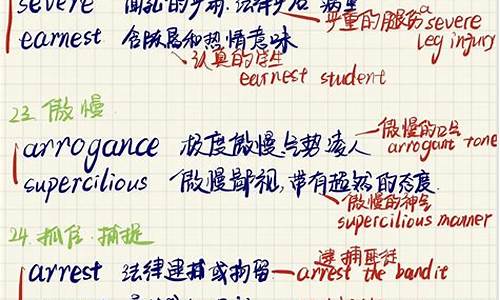 severe
严重的腿伤 a severe leg injury
earnest 含殷切和热情意味
认真的学生
earnest student
23. 傲慢
arrogance 极度傲慢,气势凌人
傲慢的口气
arrogant tone
supercilious 傲慢鄙视,带有超然的态度
傲慢的神气
supercilious manner
24. 抓住.捕捉
arrest 法律逮捕或拘留
逮捕匪徒
arrest the bandit